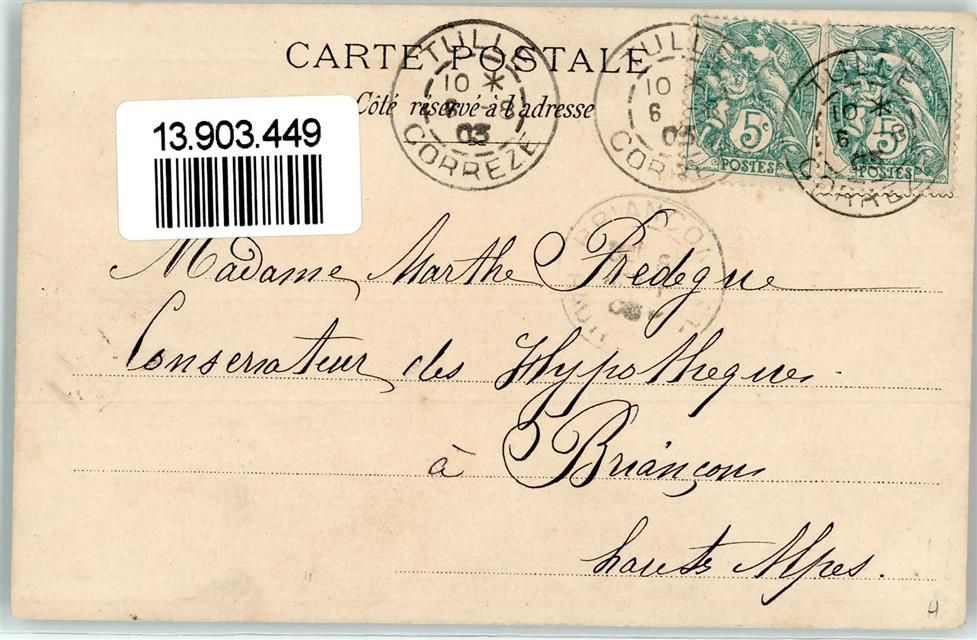 CARTE POSTALE
Côté réservé à l'adresse
13.903.449
TULLE
10 *
6 -8
03
CORRÈZE
TULLE
10 *
6
03
CORR
5c
POSTES
TULLE
10 *
6
5c
POSTES
BRIANÇON
Madame Marthe Predegue
Conservateur des Hypotheques.
à Briançon
hautes Alpes.
4